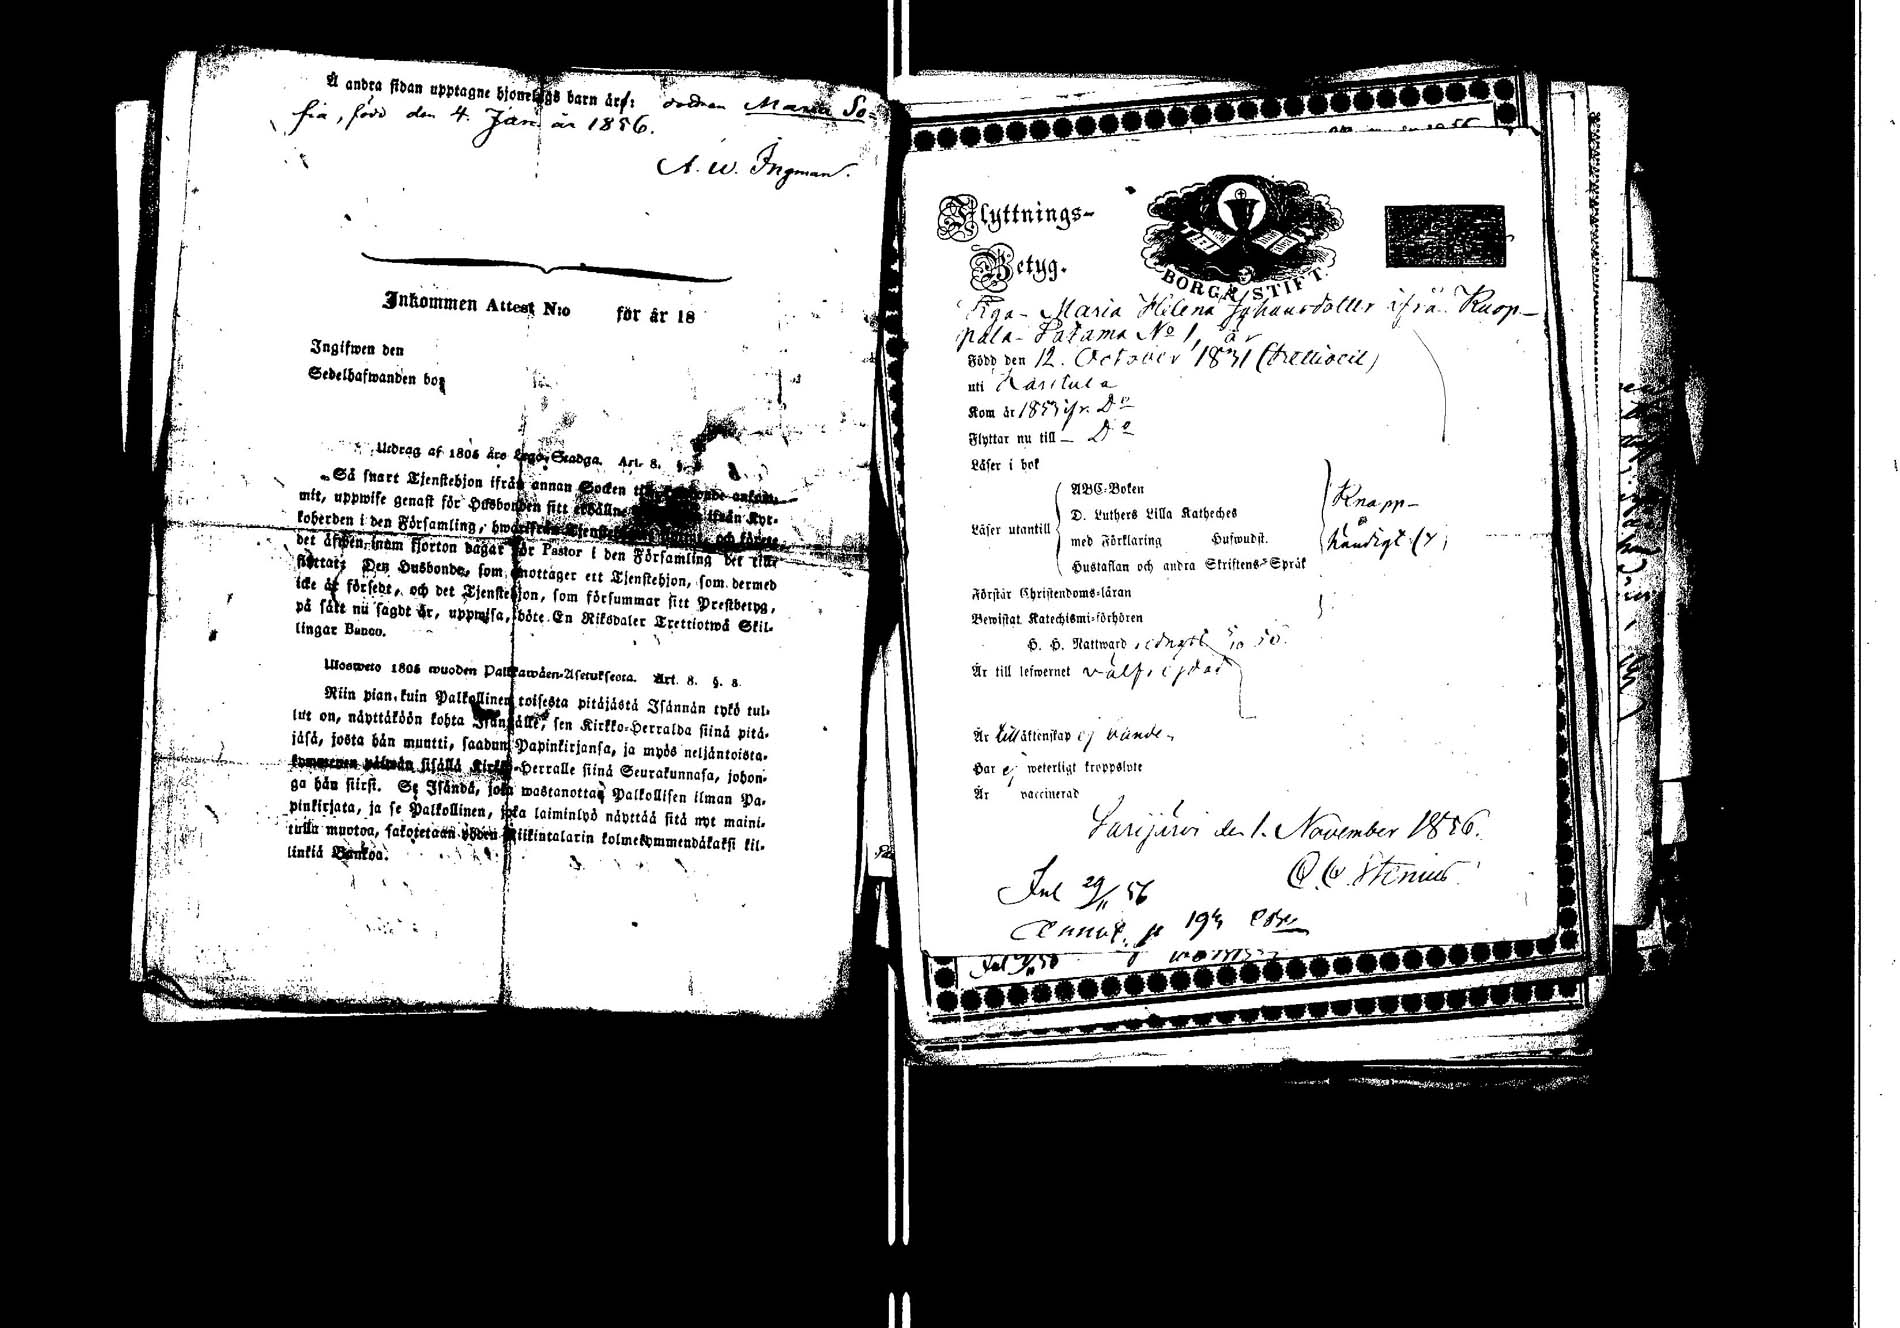 Å andra sidan upptagne hjonelags barn äro: dottren Maria So-
fia, född den 4. Jan. år 1856.
A. W. Ingman.
Inkommen Attest N:o för år 18
Ingifwen den
Sedelhafwanden bor
Utdrag af 1805 års Lego-Stadga. Art. 8. §.
Så snart Tjenstehjon ifrån annan Socken
mit, uppwise genast för Husbonden sitt erhållne ifrån Kyr-
koherden i den Församling, hwarifrån och förete
det äfwen inom fjorton dagar för Pastor i den Församling det till-
flyttat; Den Husbonde, som emottager ett Tjenstehjon, som dermed
icke är försedt, och det Tjenstehjon, som försummar sitt Prestbetyg,
på sätt nu sagdt är, uppwisa, böte En Riksdaler Trettiotwå Skil-
lingar Banco.
Ulosweto 1805 wuoden Palkkawäen-Asetuksesta. Art. 8. §. 8.
Niin pian, kuin Palkollinen toisesta pitäjästä Isännän tykö tul-
lut on, näyttäköön kohta Isännälle, sen Kirkko-Herralda siinä pitä-
jäsä, josta hän muutti, saadun Papinkirjansa, ja myös neljäntoista-
kymmenen päiwän sisällä Kirkko-Herralle siinä Seurakunnasa, johon-
ga hän siirst. Se Isändä, joka wastanottaa Palkollisen ilman Pa-
pinkirjata, ja se Palkollinen, joka laiminlyö näyttää sitä nyt maini-
tulla muotoa, sakotetaan yhden Riikintalarin kolmekymmendäkaksi kil-
linkiä Bankoa.
Flyttnings-
Betyg.
BORGÅ STIFT
Pga- Maria Helena Johansdotter ifrå Knop-
pala- Satama No 1, är
Född den 12. October 1831 (trettioett)
uti Karstula
Kom år 1853 ifr. Do
Flyttar nu till - Do
Läser i bok
Läser utantill
ABC-Boken
D. Luthers Lilla Katheches
med Förklaring Hufwudst.
Hustaflan och andra Skriftens-Språk
Knapp-
händigt
Förstår Christendoms-läran
Bewistat Katechismi-förhören
H. H. Nattward
Är till lefwernet välfrejdad
Är till äktenskap ej bunden
Har ej weterligt kroppslyte
Är vaccinerad
Saarijärvi den 1. November 1856.
Stenius
Inl 29/11 56
Inl